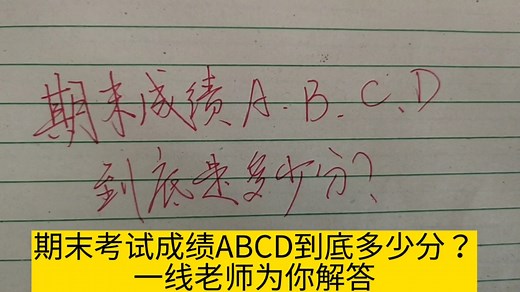 期末成绩A.B.C.D
到底是多少分?
期末考试成绩ABCD到底多少分？
一线老师为你解答